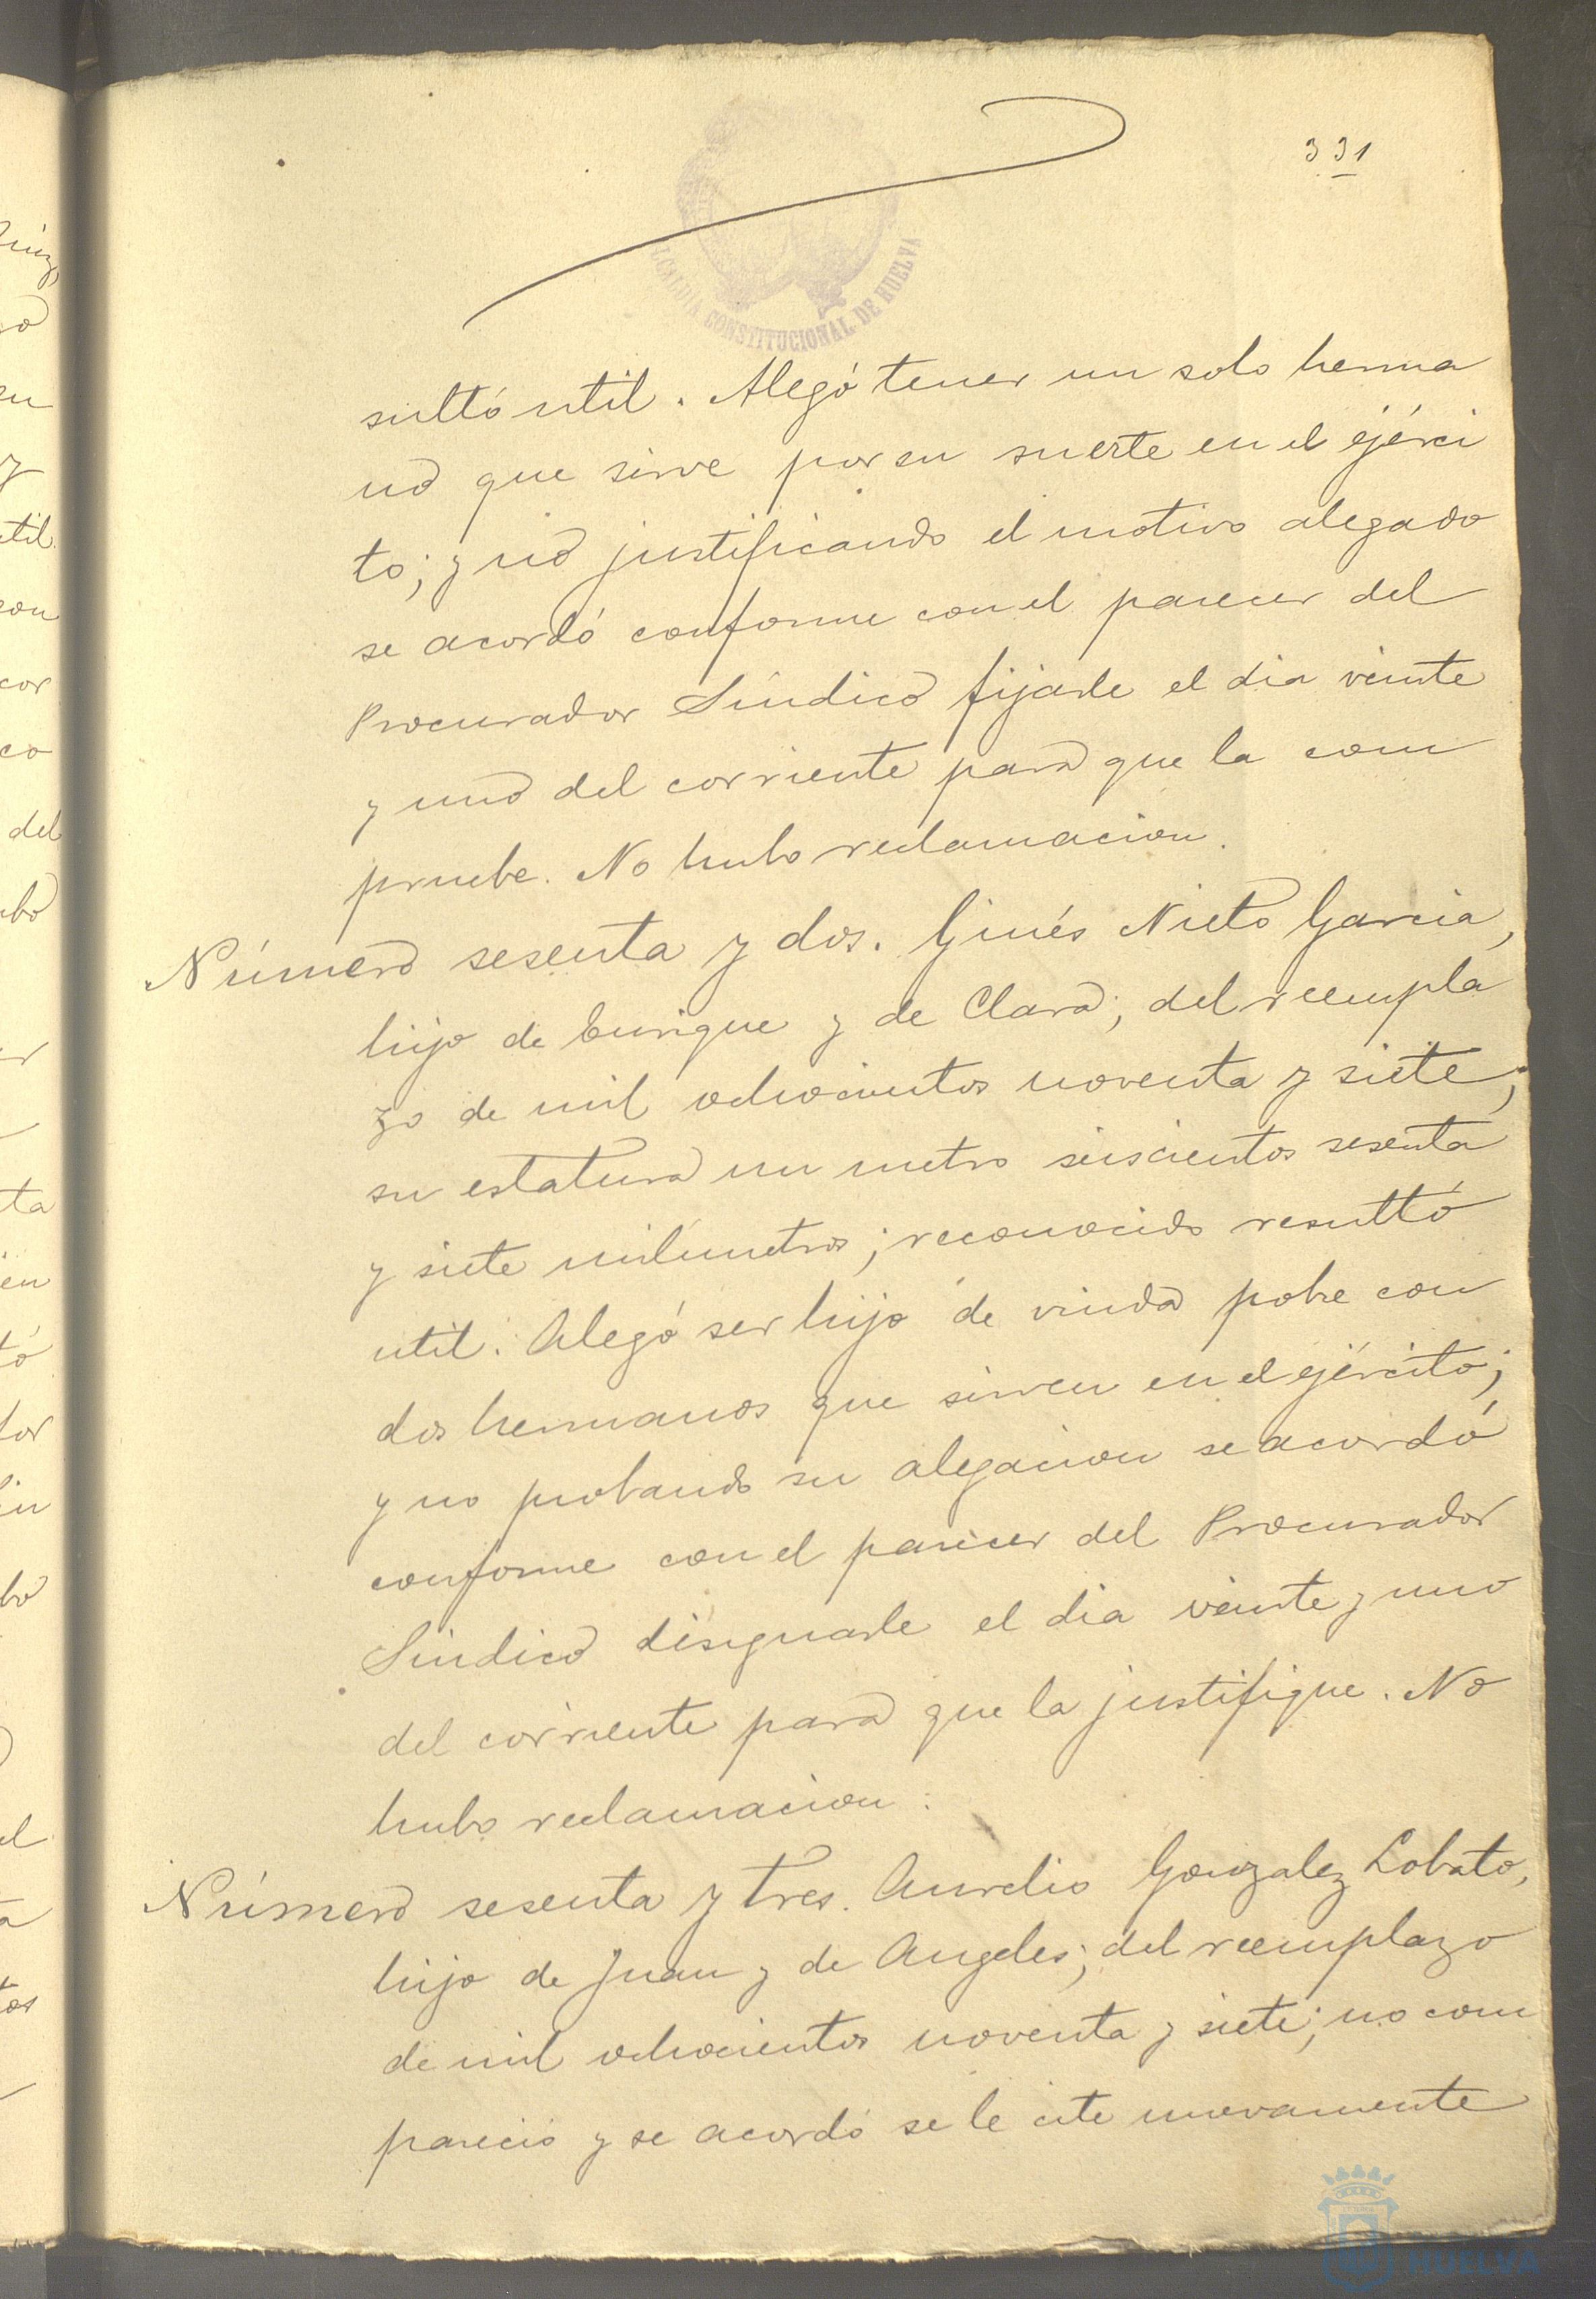 331
ALCALDIA CONSTITUCIONAL DE HUELVA
sultó util. Alegó tener un solo herma
no que sirve por su suerte en el ejérci
to; y no justificando el motivo alegado
se acordó conforme con el parecer del
Procurador Síndico fijarle el dia veinte
y uno del corriente para que la com
pruebe. No hubo reclamacion.
Número sesenta y dos. Ginés Nieto Garcia,
hijo de Enrique y de Clara; del reempla
zo de mil ochocientos noventa y siete;
su estatura un metro seiscientos sesenta
y siete milímetros; reconocido resultó
util. Alegó ser hijo de viuda pobre con
dos hermanos que sirven en el ejército;
y no probando su alegacion se acordó
conforme con el parecer del Procurador
Síndico designarle el dia veinte y uno
del corriente para que la justifique. No
hubo reclamacion.
Número sesenta y tres. Aurelio Gonzalez Lobato,
hijo de Juan y de Angeles; del reemplazo
de mil ochocientos noventa y siete; no com
pareció y se acordó se le cite nuevamente
HUELVA